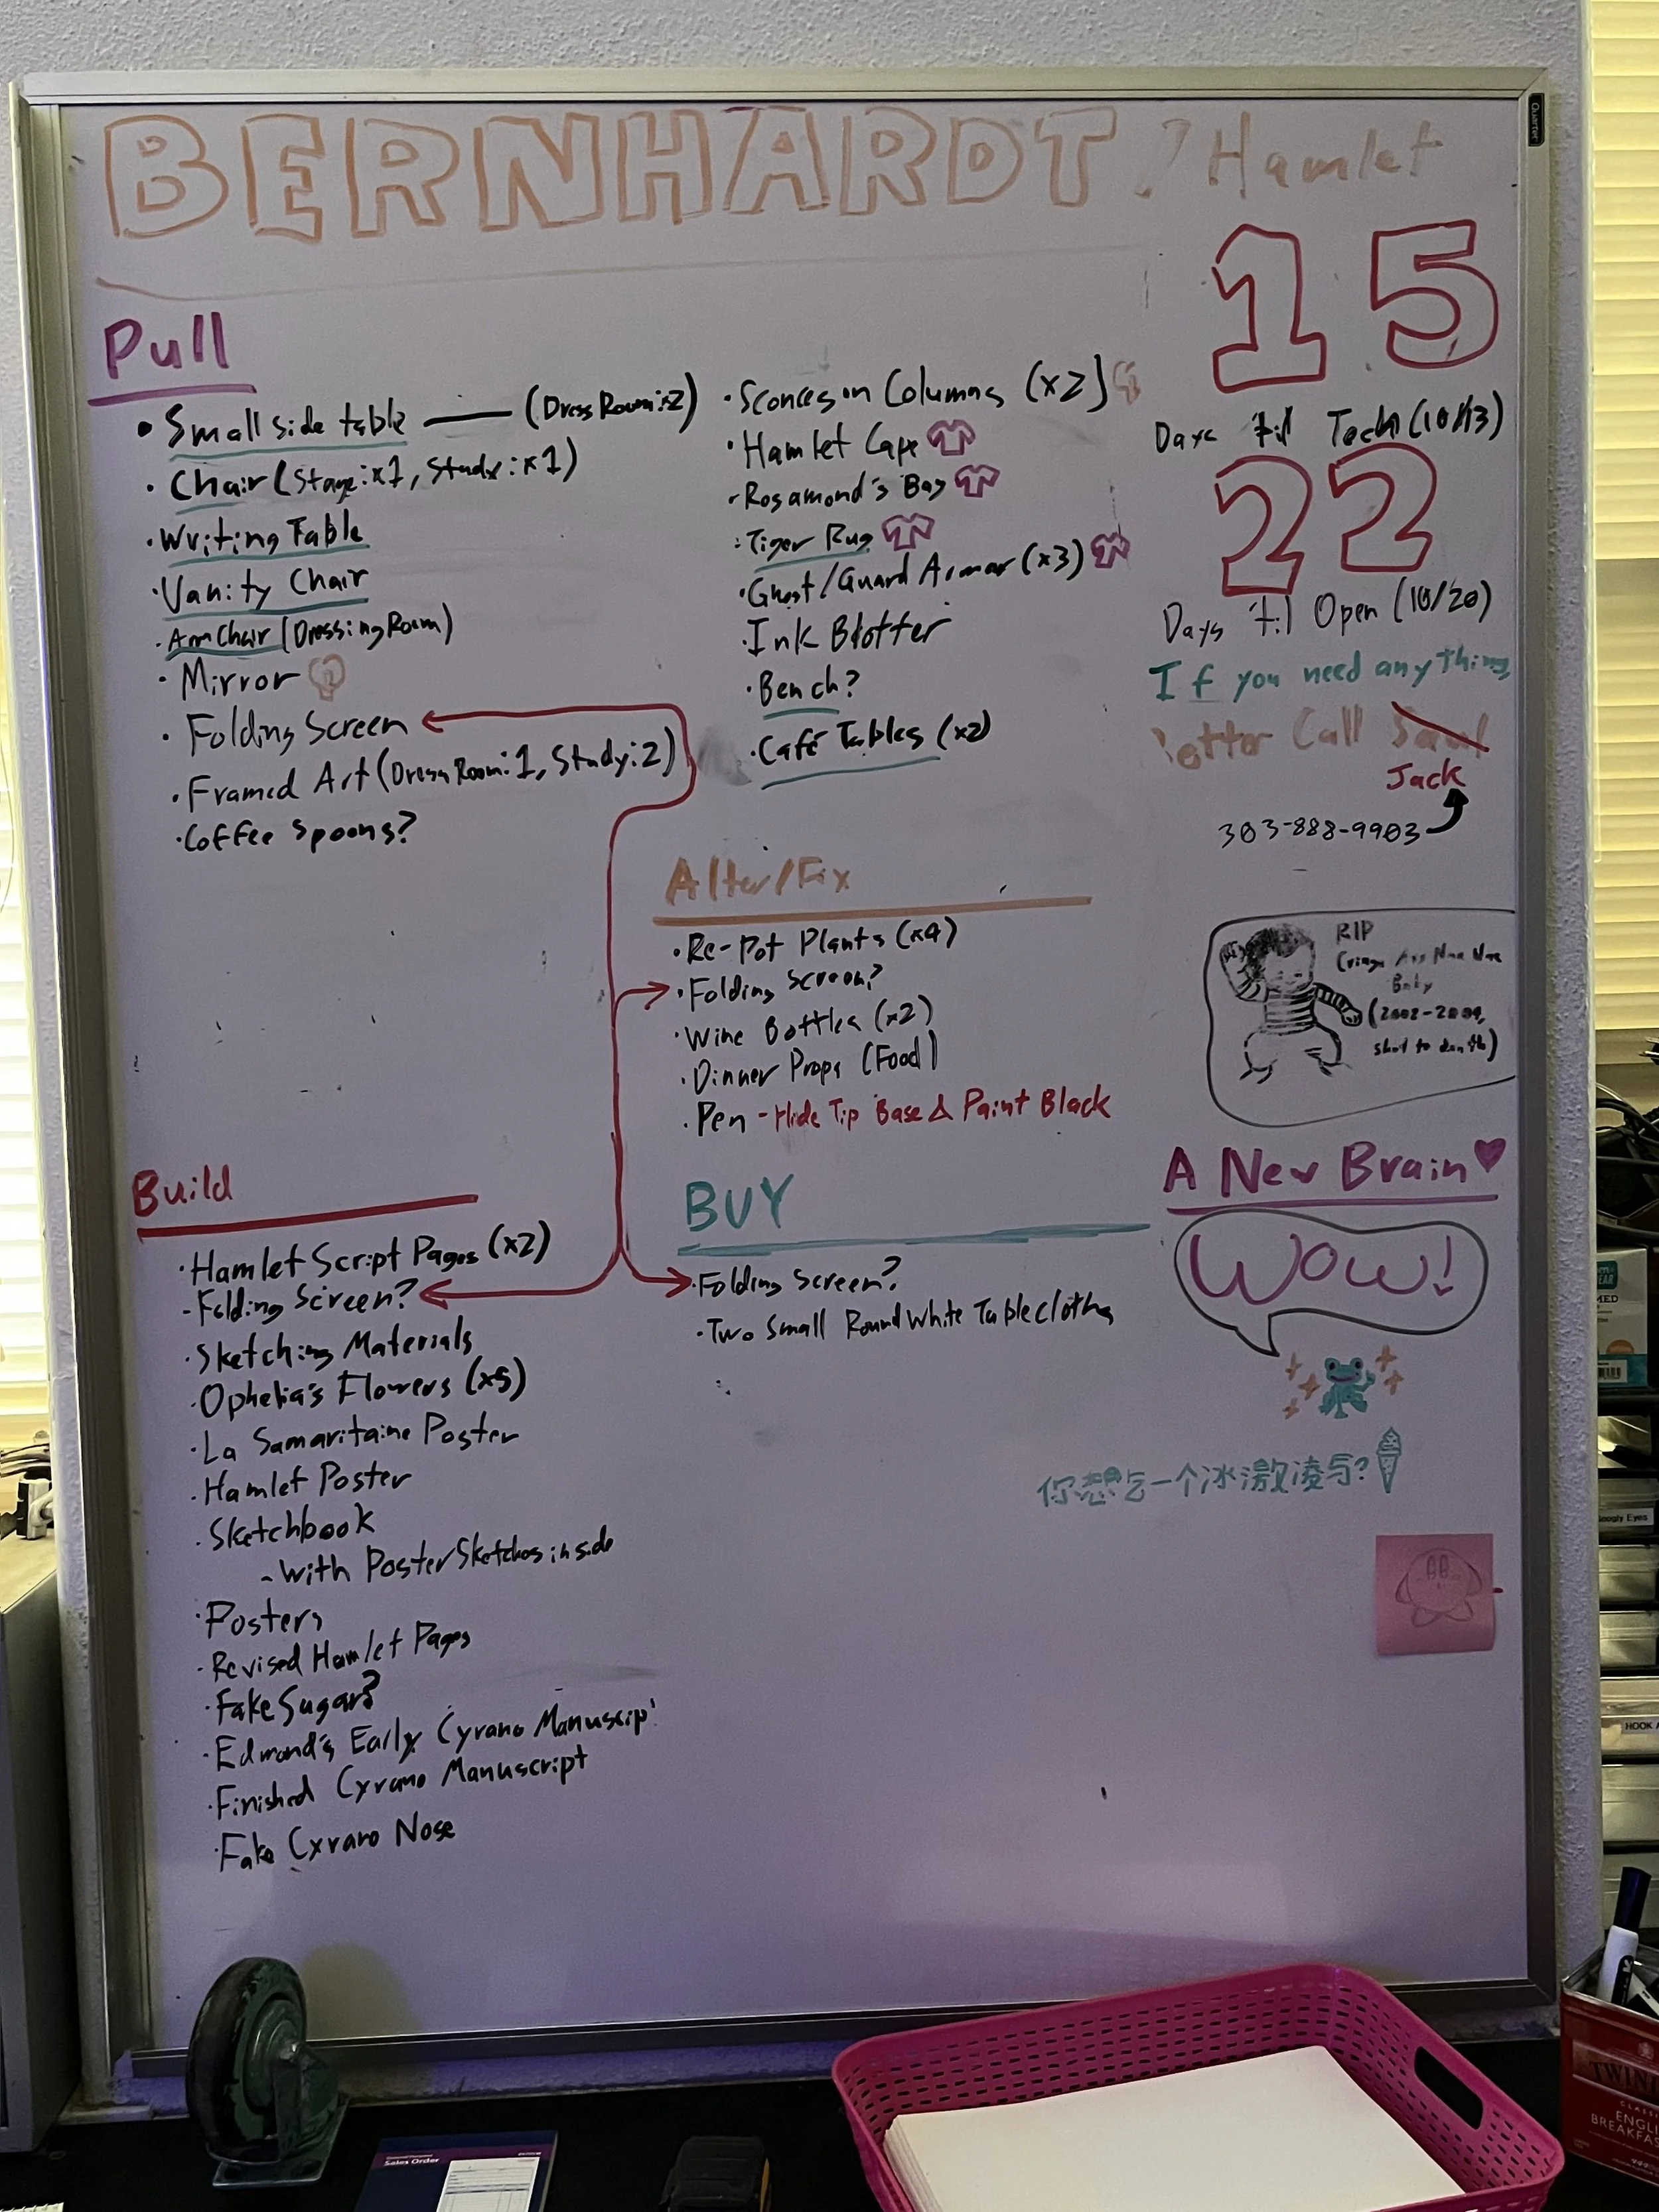 BERNHARDT / Hamlet
Pull
• Small side table — (Dress Room: 2)
• Chair (Stage: x1, Study: x1)
• Writing Table
• Vanity Chair
• Arm Chair (Dressing Room)
• Mirror
• Folding Screen
• Framed Art (Dress Room: 1, Study: 2)
• Coffee Spoons?
• Sconces on Columns (x2)
• Hamlet Cape
• Rosamond's Bag
• Tiger Rug
• Ghost/Guard Armor (x3)
• Ink Blotter
• Bench?
• Café Tables (x2)
15
Days 'til Tech (10/13)
22
Days 'til Open (10/20)
If you need anything
Better Call Saul
Jack
303-888-9903
Alter/Fix
• Re-Pot Plants (x4)
• Folding Screen?
• Wine Bottles (x2)
• Dinner Props (Food)
• Pen - Hide Tip Base & Paint Black
RIP
Cringe Ass Nae Nae
Baby
(2002-2009,
shot to death)
Build
• Hamlet Script Pages (x2)
- Folding Screen?
• Sketching Materials
• Ophelia's Flowers (x5)
• La Samaritaine Poster
• Hamlet Poster
• Sketchbook
- With Poster Sketches inside
• Posters
• Revised Hamlet Pages
• Fake Sugar?
• Edmond's Early Cyrano Manuscript
• Finished Cyrano Manuscript
• Fake Cyrano Nose
BUY
• Folding Screen?
• Two Small Round White Tablecloths
A New Brain
Wow!
你想吃一个冰激凌吗?
Quartet
Googly Eyes
HOOK
Sales Order
TWININ
CLASSI
ENGLI
BREAKFAS